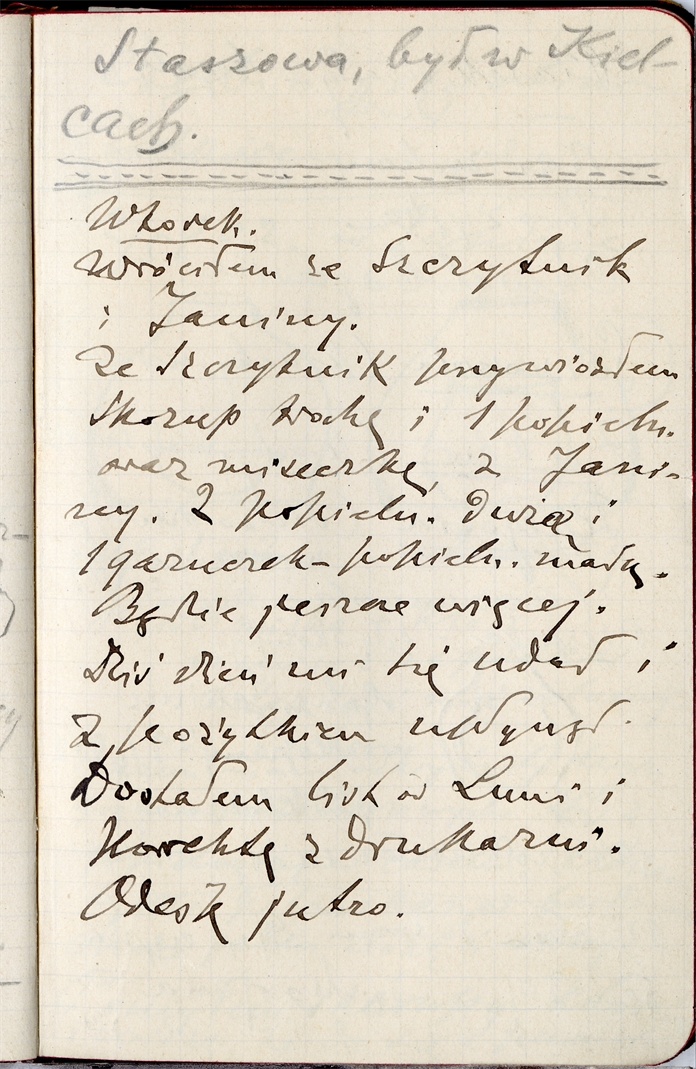 Staszowa, był w Kiel-
cach.
Wtorek.
Wróciłem ze Szczytnik
i Janiny.
Ze Szczytnik przywiozłem
Skorup trochę i 1 popieln.
oraz miseczkę, z Jani-
ny. 2 popieln. duże i
1 garnczek - popieln. małą.
Będzie jeszcze więcej.
Dziś dzień mi się udał i
z pożytkiem upłynął.
Dostałem list od Luni i
korektę z drukarni.
Odeślę jutro.